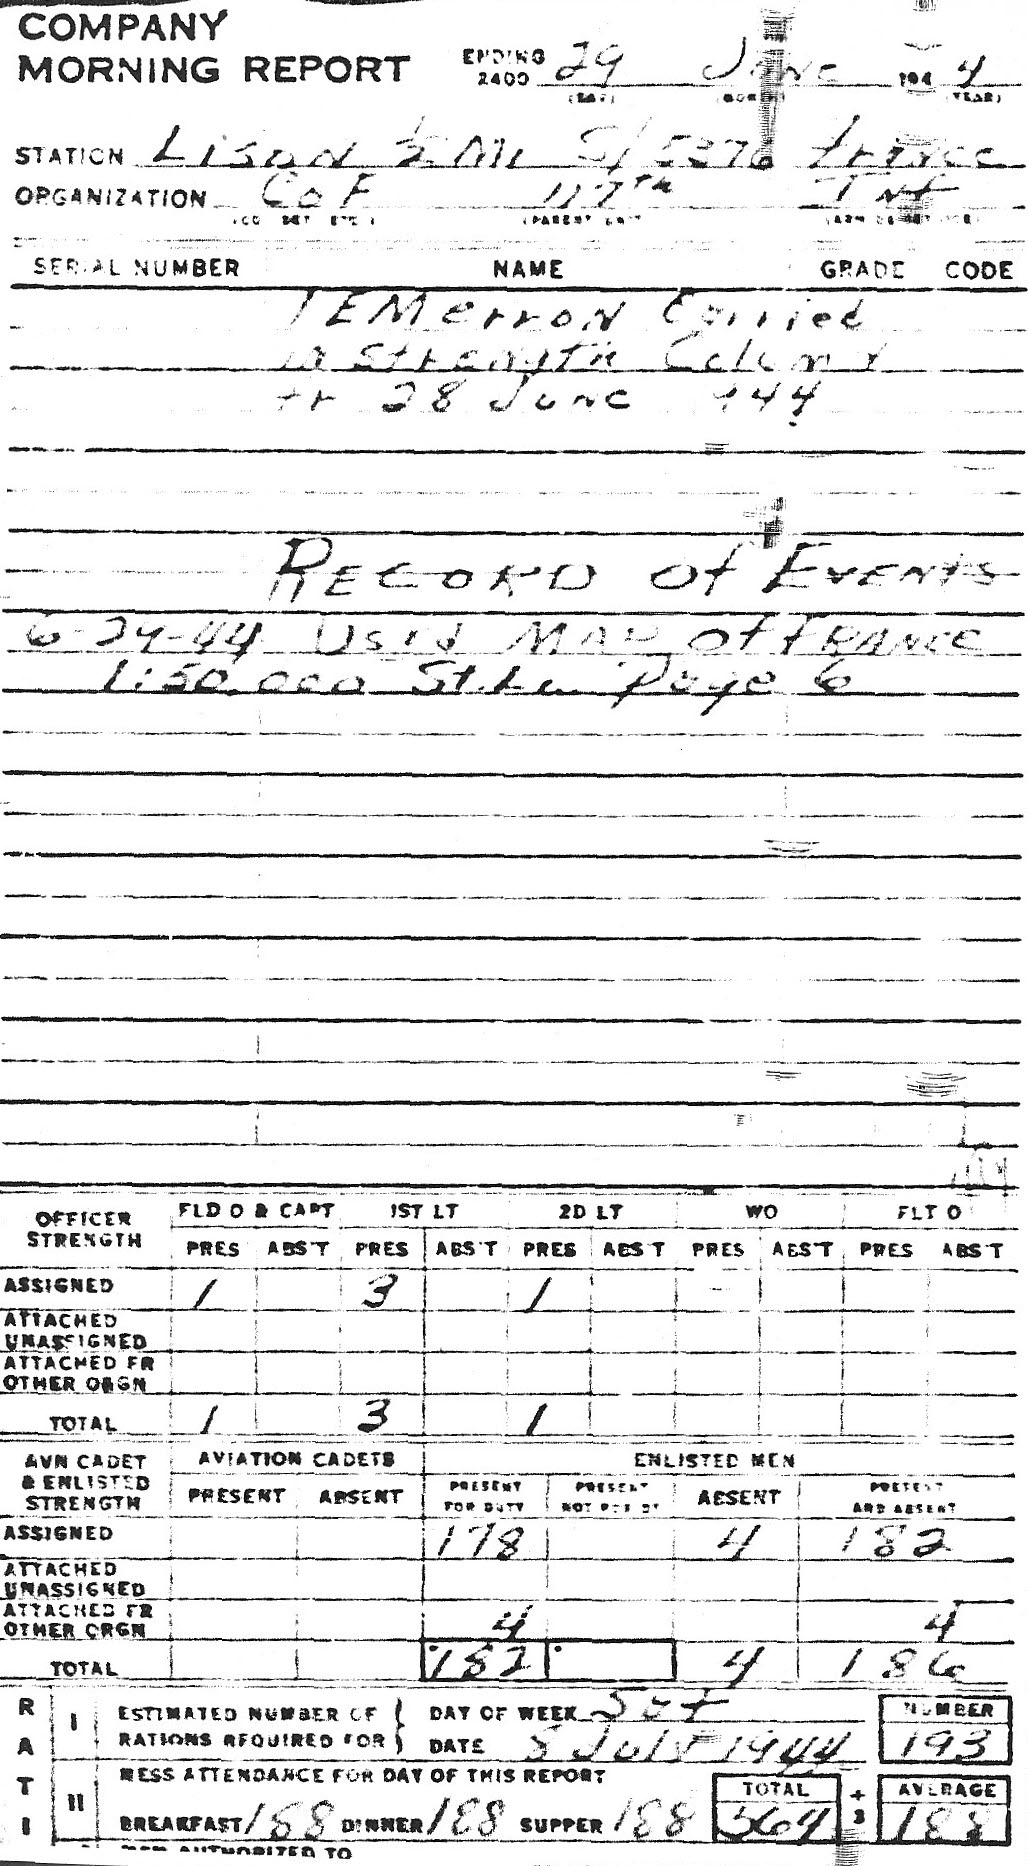 COMPANY
MORNING REPORT
ENDING 2400 29 June 194 4
(DAY) (MONTH) (YEAR)
STATION Lison ½ Mi S/ 5376 France
ORGANIZATION Co F 117th Inf
(CO DET ETC) (PARENT UNIT)
SERIAL NUMBER NAME GRADE CODE
1 EM erron Carried
in Strength Column
fr 28 June 44
RECORD Of EVENTS
6-29-44 Used MAP of FRANCE
1:50,000 St. Lo Page 6
OFFICER STRENGTH FLD O & CAPT 1ST LT 2D LT WO FLT O
PRES ABS'T PRES ABS'T PRES ABS'T PRES ABS'T PRES ABS'T
ASSIGNED 1 3 1
ATTACHED UNASSIGNED
ATTACHED FR OTHER ORGN
TOTAL 1 3 1
AVN CADET & ENLISTED STRENGTH AVIATION CADETS ENLISTED MEN
PRESENT ABSENT PRESENT FOR DUTY PRESENT NOT FOR DY ABSENT PRESENT AND ABSENT
ASSIGNED 178 4 182
ATTACHED UNASSIGNED
ATTACHED FR OTHER ORGN 4 4
TOTAL 182 4 186
RATI
I ESTIMATED NUMBER OF RATIONS REQUIRED FOR } DAY OF WEEK Sat NUMBER
DATE 8 July 1944 193
II MESS ATTENDANCE FOR DAY OF THIS REPORT TOTAL ÷ 3 AVERAGE
BREAKFAST 188 DINNER 188 SUPPER 188 564 188
AUTHORIZED TO